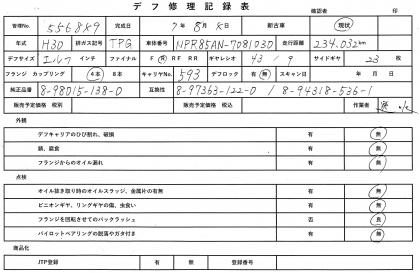 デフ修理記録表
確認者 印
管理No. 5568K9 完成日 7年 8月 日 新古車 現状
年式 H30 排ガス記号 TPG 車体番号 NPR85AN-7081030 走行距離 234.032km
デフサイズ エルフ インチ ファイナル F R RF RR ギヤレシオ 43/9 サイドギヤ 23 枚
フランジ カップリング 4本 8本 キャリヤNo. 593 デフロック 有 無 スキャン日 年 月 日
純正品番 8-98015-138-0 互換性 8-97363-122-0 / 8-94318-536-1
販売予定価格 税別 販売予定価格 税込 作業者
外観
デフキャリアのひび割れ、破損 有 無
錆、腐食 有 無
フランジからのオイル漏れ 有 無
点検
オイル抜き取り時のオイルスラッジ、金属片の有無 有 無
ピニオンギヤ、リングギヤの傷、虫食い 有 無
フランジを回転させてのバックラッシュ 否 良
パイロットベアリングの脱落やガタ付き 有 無
商品化
JTP登録 有 無 登録番号